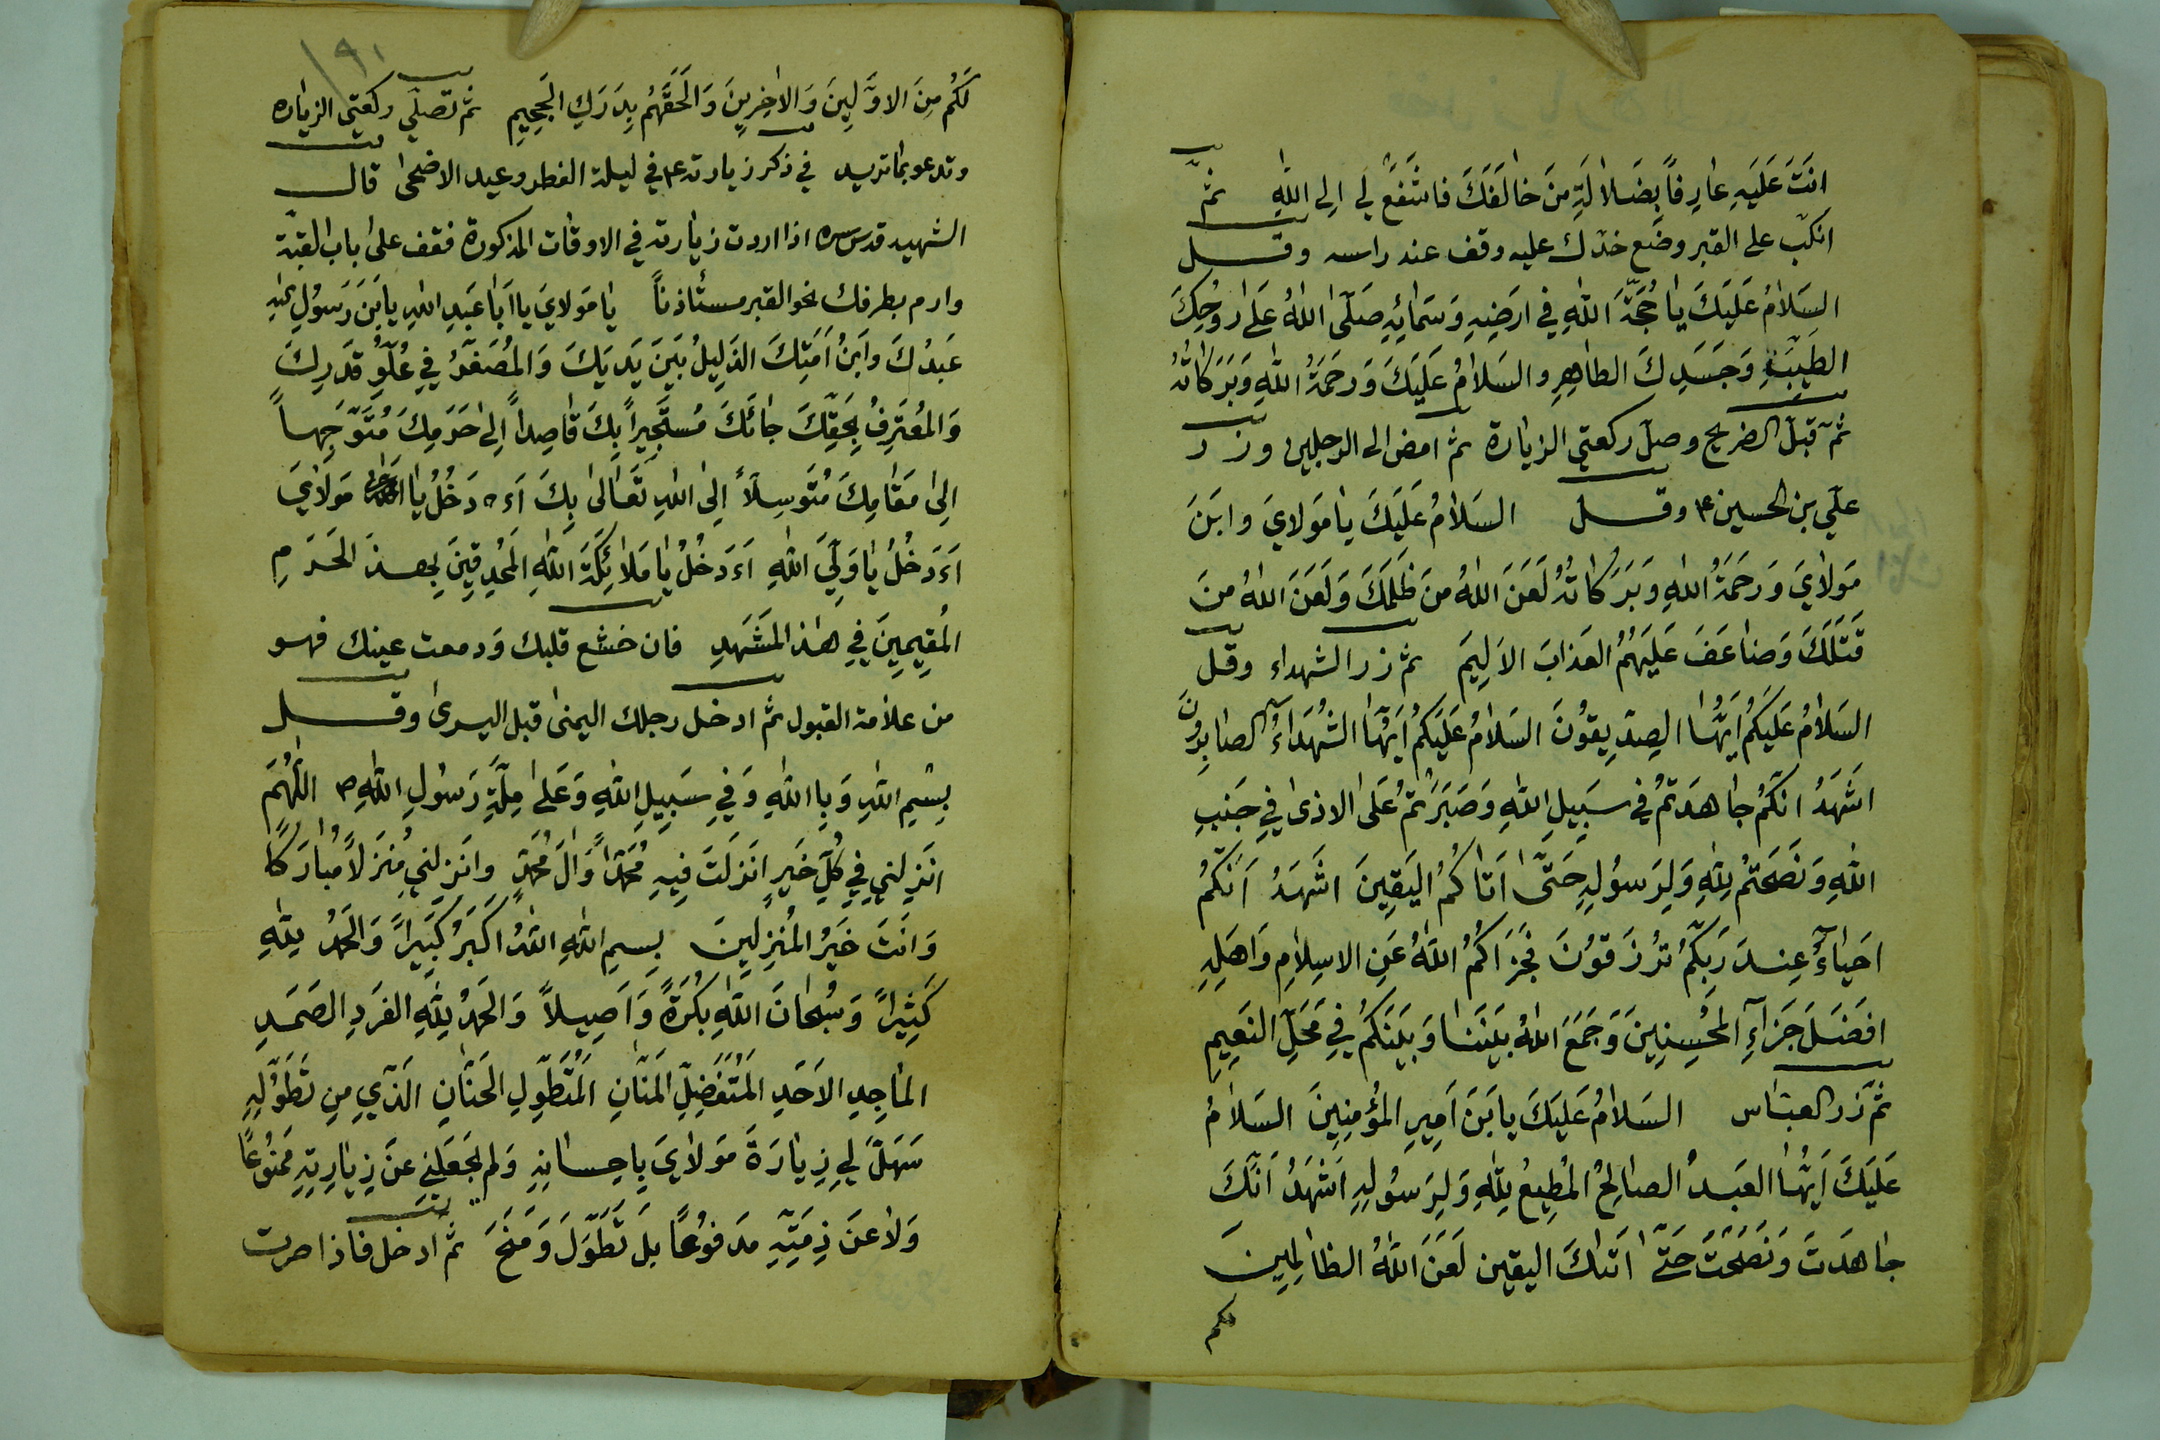 اَنْتَ عَلَيْهِ عارِفاً بِضَلالَةِ مَنْ خالَفَكَ فاشْفَعْ لي اِلى اللهِ ثمّ
انكبّ على القبر وضَع خدّك عليه وقف عند راسه وقل
السَلامُ عَلَيْكَ يا حُجَّةَ اللهِ في ارَضِهِ وَسَمائِهِ صَلّى اللهُ عَلى روُحِكَ
الطَيِّبَةِ وَجَسَدِكَ الطاهِرِ والسَلامُ عَلَيْكَ وَرحَمَةُ اللهِ وَبَرَكاتُهُ
ثمّ قبّل الضريح وصلّ ركعتي الزيارة ثم امض الى الرجلين وزر
علّي بن الحسين ع وقل السَلامُ عَلَيْكَ يا مَولايَ وابَنَ
مَولايَ وَرحَمَةُ اللهِ وَبَرَكاتُهُ لَعَنَ اللهُ مَنَ ظَلَمَكَ وَلَعَنَ اللهُ مَنَ
قَتَلَكَ وَضاعَفَ عَلَيَهِمُ العَذابَ الاَلِيمَ ثم زر الشهداء وقل
السَلامُ عَلَيَكُم اَيَّهُا الصِدّيِقوُنَ السَلامُ عَلَيَكُم اَيَّهُا الشُهَداءُ الصابِروُنَ
اشَهَدُ انَّكُم جاهَدتمُ في سَبيلِ اللهِ وَصَبَرتمُ عَلى الاذى في جَنبِ
اللهِ وَنَصَحتمُ لِلهِ وَلِرَسوُلِهِ حَتّى اَتاكُمُ اليَقِينَ اشَهَدُ اَنَّكُم
احَياءٌ عِندَ رَبِّكُم ترُزَقوُنَ فَجَزاكُمُ اللهُ عَنِ الاسِلامِ وَاهَلِهِ
افَضَلَ جَزاءِ المحُسِنِينَ وَجَمَعَ اللهُ بَيَنَنا وَبَيَنَكُم في مَحَلِّ النَعِيمِ
ثمّ زر العبّاس السَلامُ عَلَيكَ يا بَنَ اَمِيرِ المُؤمِنِينَ السَلامُ
عَلَيَكَ اَيَّهُا العَبدُ الصالِحُ المُطِيعُ لِلهِ وَلِرَسوُلِهِ اَشَهَدُ اَنَّكَ
جاهَدتَ وَنَصَحَتَ حَتّى اَتىكَ اليقين لَعَنَ اللهُ الظالِمين
لكم
لَكُم مِنَ الاوَّلِينَ وَالاخِرِينَ وَالَحَقَهُم بِدَرَكِ الجَحِيمِ ثم تصلّي ركعتي الزيارة
وتدعو بما تريد في ذكر زيارته ع في ليلة الفطر وعيد الاضحى قال
الشهيد قدس سره اذا اردت زيارته في الاوقات المذكورة فقف على باب القبّة
وارم بطرفك نحو القبر مستأذناً يا مَولايَ يا اَبا عَبدِ اللهِ يا بَنَ رَسوُلِ اللهِ
عَبدُكَ وابَنُ اَمَتِكَ الذَلِيلُ بَيَنَ يَدَيَكَ وَالمُصَغَّرُ في عُلُوِّ قَدرِكَ
وَالمُعتَرِفُ بِحَقِّكَ جائَكَ مُستَجِيراً بِكَ قاصِداً اِلى حَرَمِكَ مُتَوَجِّهاً
اِلى مَقامِكَ مُتَوسِلّاً اِلى اللهِ تَعَالى بِكَ اَءَدخُلُ يا مَولايَ
اَءَدخُلُ يا وَلِيَّ اللهِ اَءَدخُلُ يا مَلائِكَةَ اللهِ المحُدِقِينَ بِهذا الحَرَمِ
المُقِيمِينَ في هذا المَشَهَدِ فان خشع قلبك ودمعت عينك فهو
من علامة القبول ثم ادخل رجلك اليمنى قبل اليسرى وقل
بِسْمِ اللهِ وَبِاللهِ وَفي سَبِيلِ اللهِ وَعَلى مِلَّةِ رَسوُلِ اللهِ ص اللّهُمَّ
انَزِلني في كُلِّ خَيرٍ انَزَلَتَ فِيهِ مُحَمّداً وَالَ مُحَمّدٍ وانَزِلني مُنزَلاً مُبارَكاً
وَانَتَ خَيَرُ المُنزِلِين بِسمِ اللهِ اللهُ اكَبَرُ كَبِيراً وَالحَمدُ لِلهِ
كَثِيراً وَسُبحانَ اللهِ بُكرَةً وَاَصِيلاً وَالحَمدُ لِلهِ الفَردِ الصَمَدِ
الماجِدِ الاَحَدِ المُتَفَضِّلِ المَنّانِ المُتَطَوِّلِ الحَنّانِ الَذّيِ مِن تَطَوُّلِهِ
سَهَّلَ لي زِيارَةَ مَولايَ بِاِحسانِهِ وَلم يَجعَلني عَنَ زِيارِتِهِ مَمنوُعاً
وَلا عَنَ ذِمَّتِهِ مَدفوُعاً بَل تَطَوَّلَ وَمَنَحَ ثم ادخل فاذا صرت